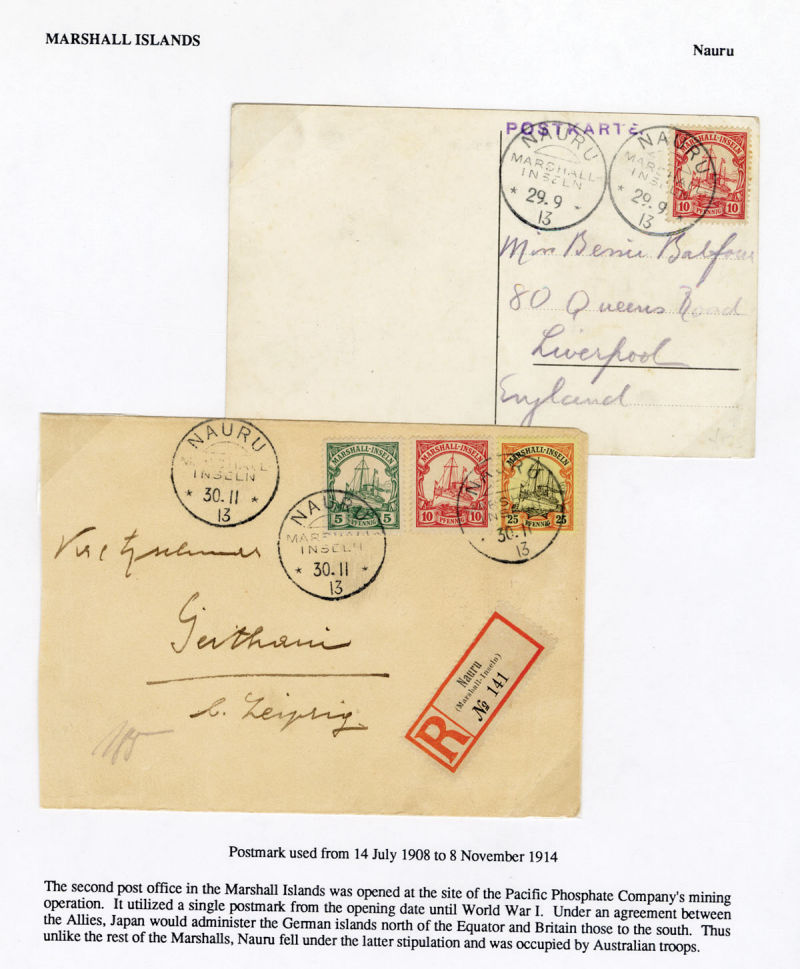 MARSHALL ISLANDS
Nauru
POSTKARTE
NAURU
MARSHALL-
INSELN
* 29.9
13
NAURU
INSELN
* 29.9 *
13
MARSHALL-INSELN
10 PFENNIG 10
Miss Bessie Balfour
80 Queens Road
Liverpool
England
NAURU
MARSHALL-
INSELN
* 30.11 *
13
NAURU
MARSHALL-
INSELN
* 30.11 *
13
MARSHALL-INSELN
5 PFENNIG 5
MARSHALL-INSELN
10 PFENNIG 10
MARSHALL-INSELN
25 PFENNIG 25
NAURU
30.11
13
b. Leipzig
Nauru
(Marshall-Inseln)
№ 141
R
Postmark used from 14 July 1908 to 8 November 1914
The second post office in the Marshall Islands was opened at the site of the Pacific Phosphate Company's mining
operation. It utilized a single postmark from the opening date until World War I. Under an agreement between
the Allies, Japan would administer the German islands north of the Equator and Britain those to the south. Thus
unlike the rest of the Marshalls, Nauru fell under the latter stipulation and was occupied by Australian troops.